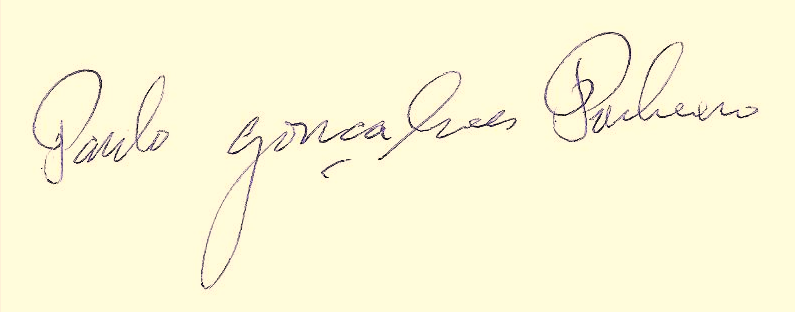 Paulo Gonçalves Pacheco